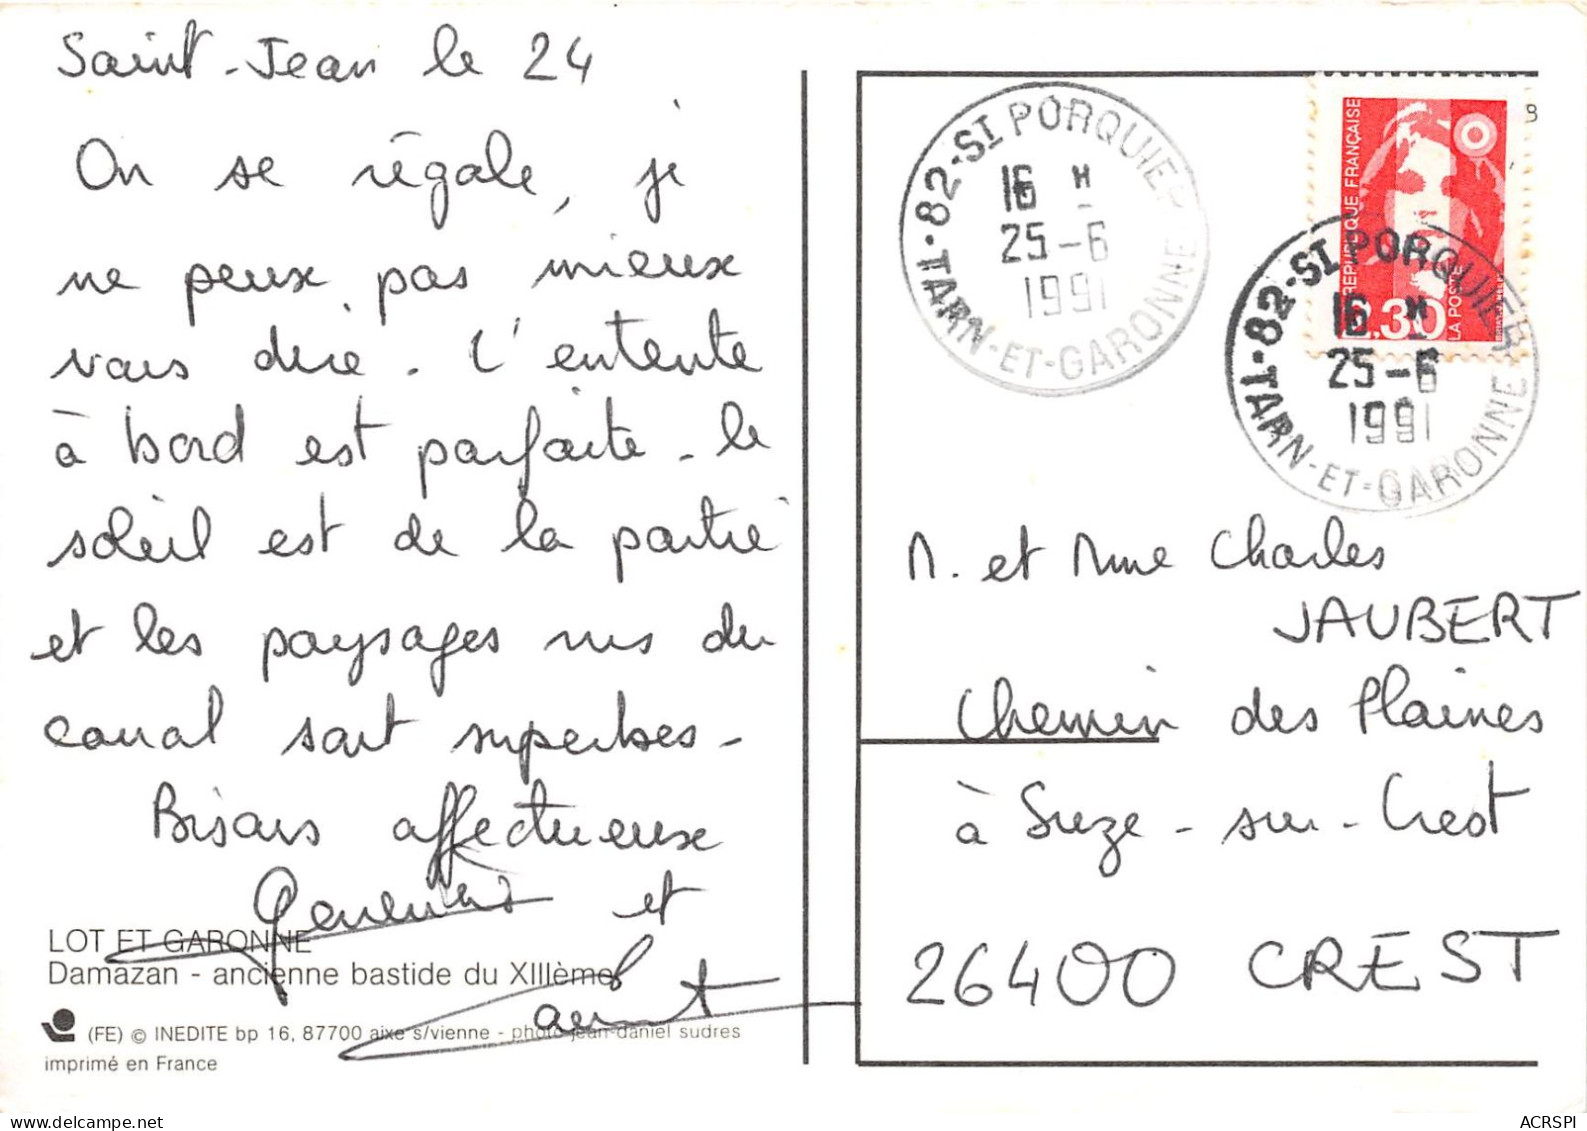 Saint-Jean le 24
On se régale, je
ne peux pas mieux
vous dire. L'entente
à bord est parfaite. le
soleil est de la partie
et les paysages vus du
canal sont superbes -
Bisous affectueux
et
LOT ET GARONNE
Damazan - ancienne bastide du XIIIème
(FE) © INEDITE bp 16, 87700 aixe s/vienne - photo jean-daniel sudres
imprimé en France
82-ST PORQUIER
16 H
25-6
1991
TARN-ET-GARONNE
RÉPUBLIQUE FRANÇAISE
2.30
LA POSTE
82-ST PORQUIER
16 H
25-6
1991
TARN-ET-GARONNE
M. et Mme Charles
JAUBERT
Chemin des Plaines
à Suze-sur-Crest
26400 CREST
ACRSPI